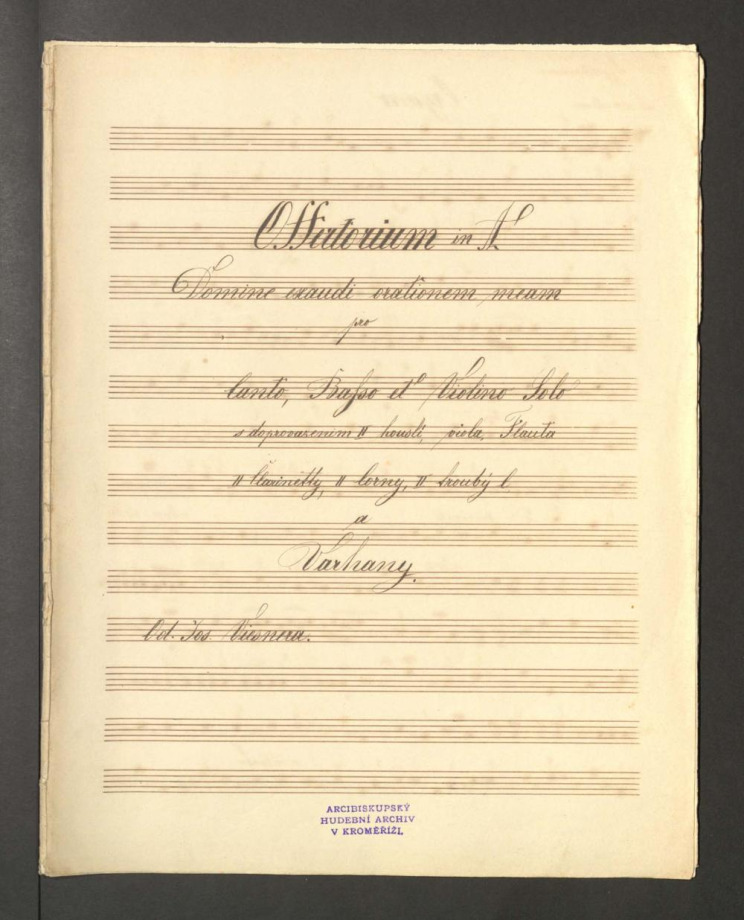 Offertorium in A
Domine exaudi orationem meam
pro
Canto, Basso et Violino Solo
s doprovazenim II housli, viola, Flauta
II Clarinetty, II Corny, II trouby C
a
Varhany.
Od. Jos.
ARCIBISKUPSKÝ
HUDEBNÍ ARCHIV
V KROMĚŘÍŽI.